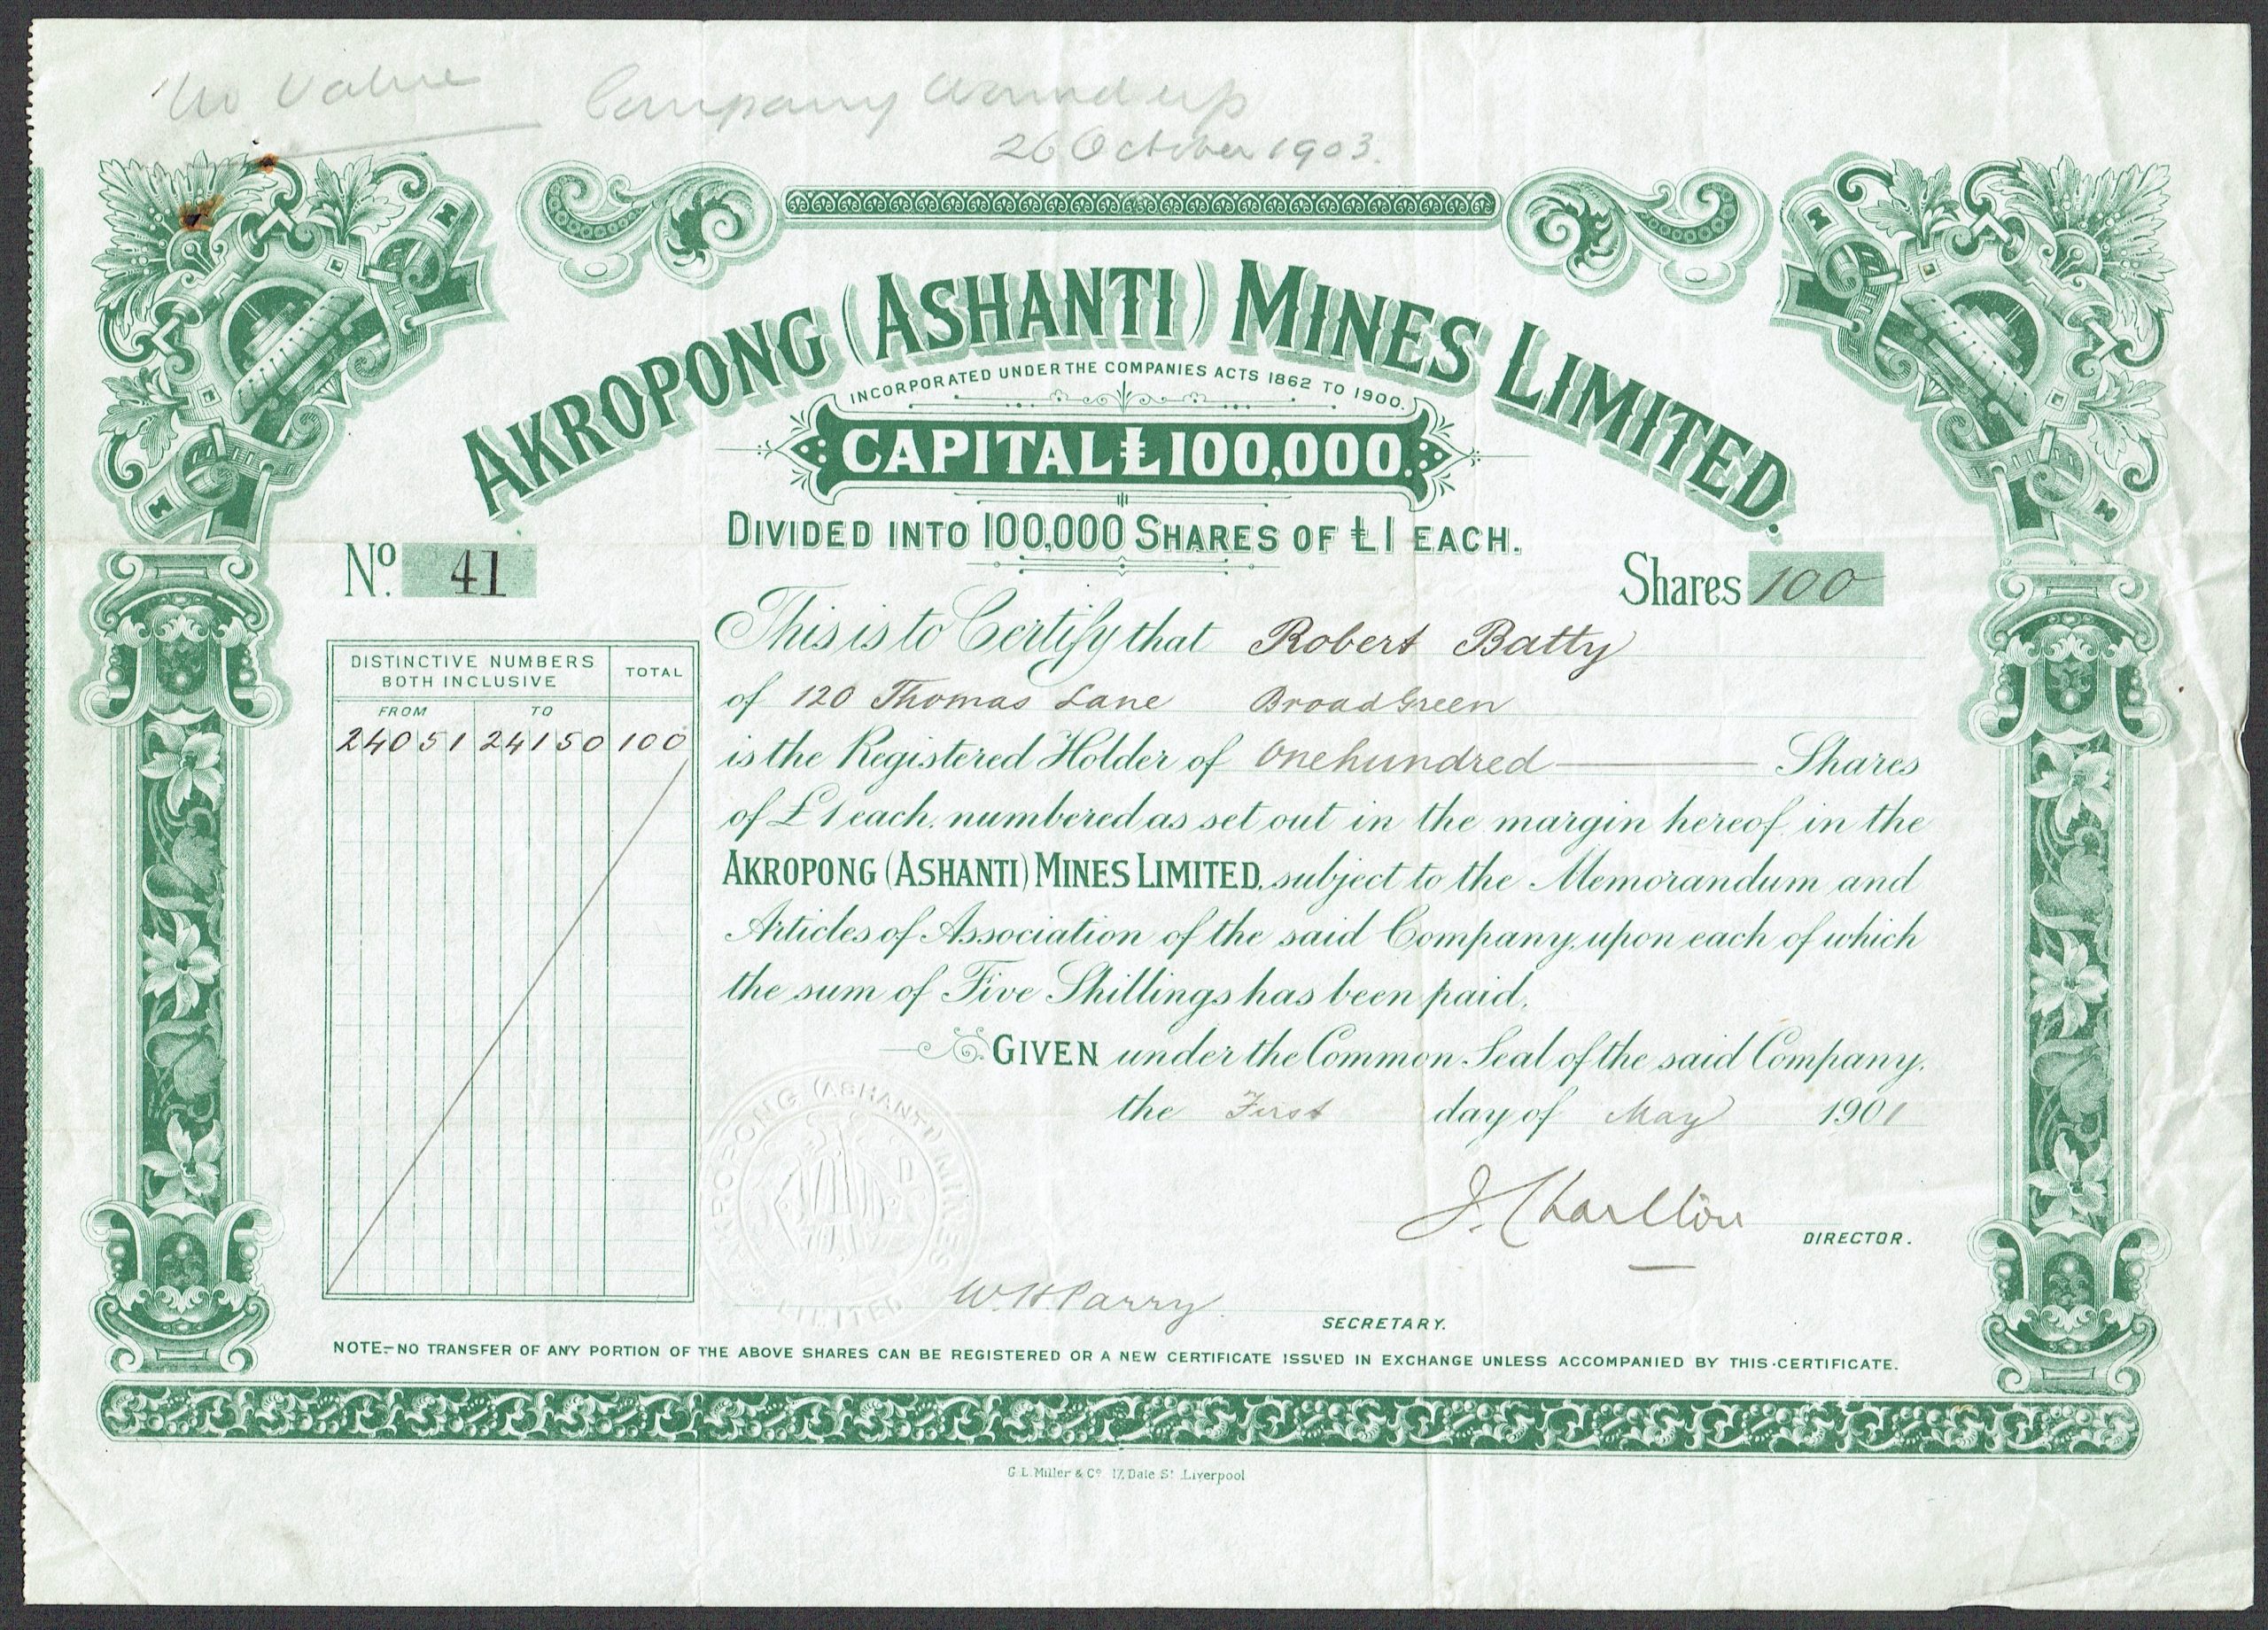 No Value Company Wound up
26 October 1903.
AKROPONG (ASHANTI) MINES LIMITED.
INCORPORATED UNDER THE COMPANIES ACTS 1862 TO 1900.
CAPITAL £100,000.
DIVIDED INTO 100,000 SHARES OF £1 EACH.
No. 41
Shares 100
DISTINCTIVE NUMBERS BOTH INCLUSIVE TOTAL
FROM TO
24051 24150 100
This is to Certify that Robert Batty
of 120 Thomas Lane Broad Green
is the Registered Holder of One hundred Shares
of £1 each, numbered as set out in the margin hereof, in the
AKROPONG (ASHANTI) MINES LIMITED, subject to the Memorandum and
Articles of Association of the said Company, upon each of which
the sum of Five Shillings has been paid.
GIVEN under the Common Seal of the said Company,
the First day of May 1901
J. Charlton
DIRECTOR.
AKROPONG (ASHANTI) MINES LIMITED
W. H. Parry
SECRETARY.
NOTE.—NO TRANSFER OF ANY PORTION OF THE ABOVE SHARES CAN BE REGISTERED OR A NEW CERTIFICATE ISSUED IN EXCHANGE UNLESS ACCOMPANIED BY THIS CERTIFICATE.
G. L. Miller & Co. 17, Dale St. Liverpool